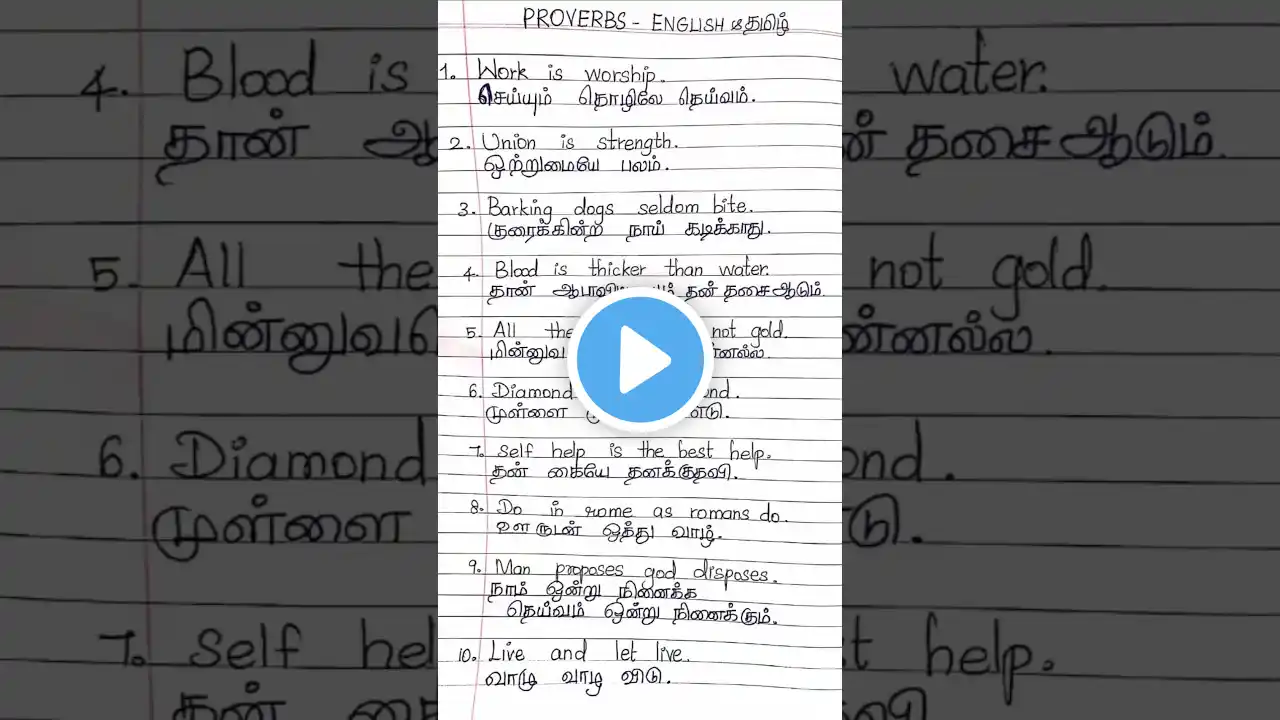 PROVERBS - ENGLISH & தமிழ்
1. Work is worship.
செய்யும் தொழிலே தெய்வம்.
2. Union is strength.
ஒற்றுமையே பலம்.
3. Barking dogs seldom bite.
குரைக்கின்ற நாய் கடிக்காது.
4. Blood is thicker than water.
தான் தன் தசை ஆடும்.
5. All the not gold.
6. Diamond
முள்ளை
7. Self help is the best help.
தன் கையே தனக்குதவி.
8. Do in rome as romans do.
ஊருடன் ஒத்து வாழ்.
9. Man proposes god disposes.
நாம் ஒன்று நினைக்க
தெய்வம் ஒன்று நினைக்கும்.
10. Live and let live.
வாழு வாழ விடு.